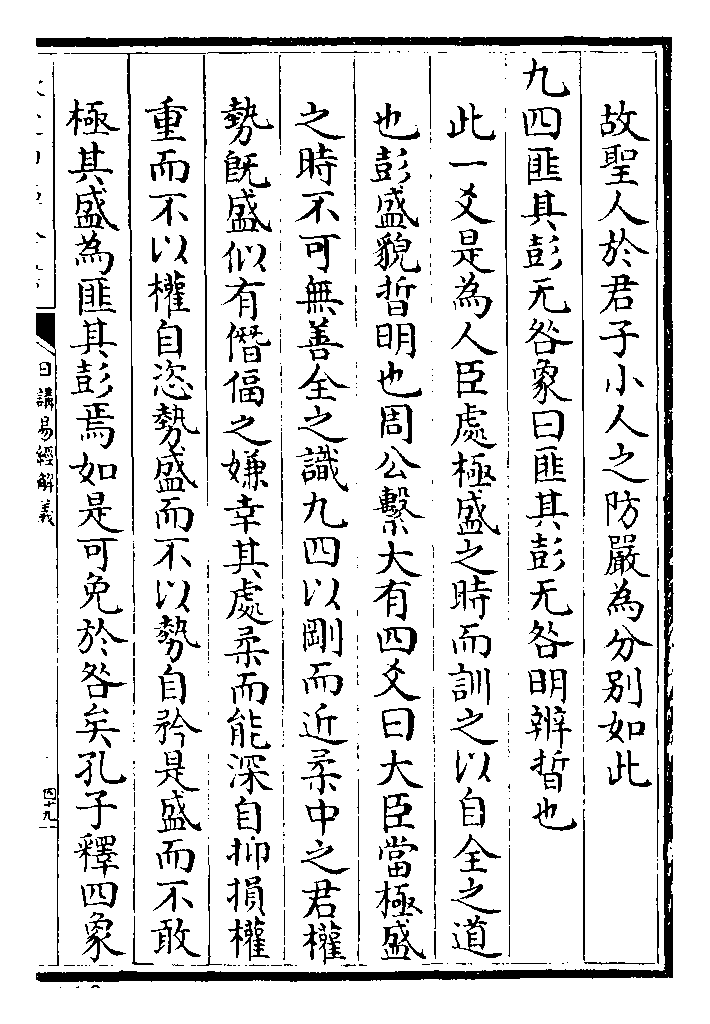 故聖人於君子小人之防嚴為分别如此
九四匪其彭无咎象曰匪其彭无咎明辨晢也
此一爻是為人臣處極盛之時而訓之以自全之道
也彭盛貌晢明也周公繫大有四爻曰大臣當極盛
之時不可無善全之識九四以剛而近柔中之君權
勢既盛似有僭偪之嫌幸其處柔而能深自抑損權
重而不以權自恣勢盛而不以勢自矜是盛而不敢
極其盛為匪其彭焉如是可免於咎矣孔子釋四象
日講易經解義
四十九